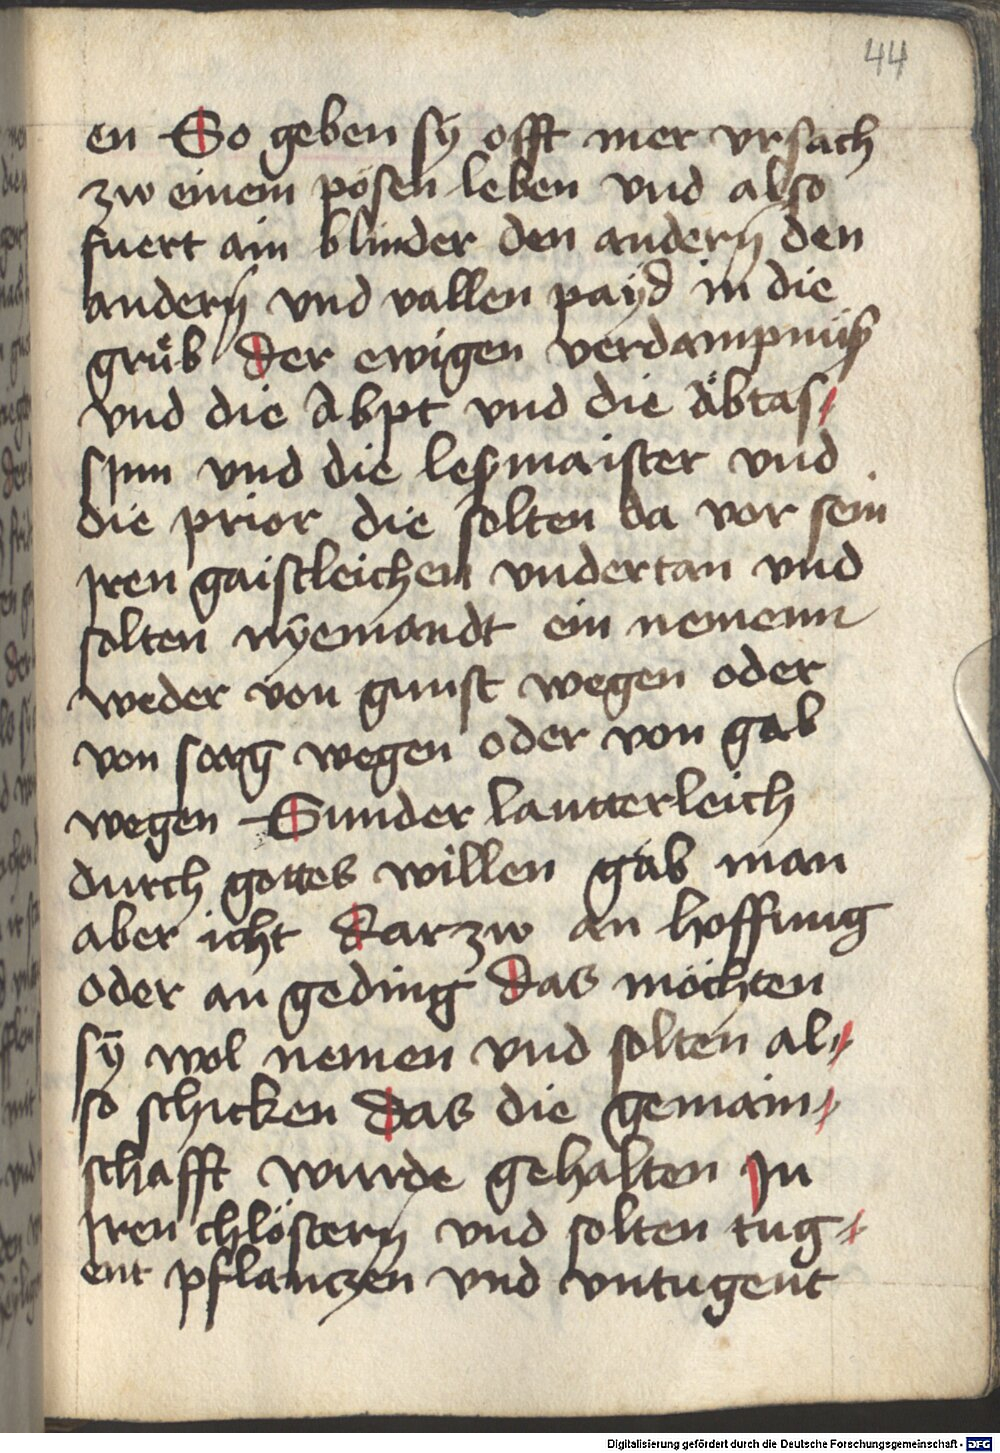 44
en So geben sÿ offt mer vrsach
zw einem pösen leben vnd also
fuert ain blinder den anderñ den
anderñ vnd vallen paÿd in die
grůb der ewigen verdampnüß
vnd die Abpt vnd die Äbtas⸗
sinn vnd die leßmaister vnd
die prior die solten da vor sein
jren gaistleichen vndertan vnd
solten nÿemandt ein nemenn
weder von gunst wegen oder
von sorg wegen oder von gab
wegen Sunder lautterleich
durch gottes willen gab man
aber icht darzw an hoffnug
oder an geding das möchten
sÿ wol nemen vnd solten al⸗
so schicken das die gemain⸗
schafft wurde gehalten Jn
jren chlösterñ vnd solten tug⸗
ent pflanczen vnd vntugent
Digitalisierung gefördert durch die Deutsche Forschungsgemeinschaft - DFG